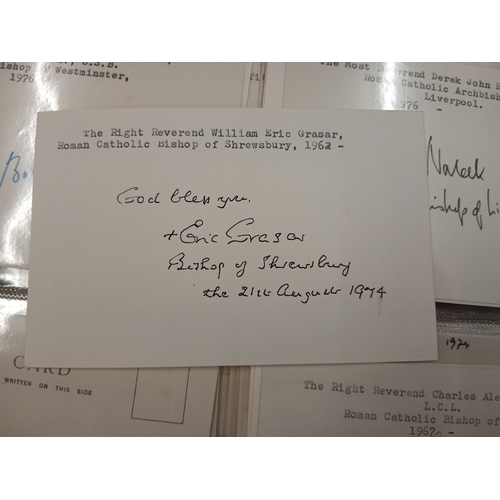 O.S.B.
Westminster,
1976
The Most Reverend Derek John
Roman Catholic Archbish
Liverpool.
1976 -
The Right Reverend William Eric Grasar,
Roman Catholic Bishop of Shrewsbury, 1962 -
God bless you.
+ Eric Grasar
Bishop of Shrewsbury
the 21st August 1974
CARD
WRITTEN ON THIS SIDE
1974
The Right Reverend Charles Ale
L.C.L.
Roman Catholic Bishop of
1967 -